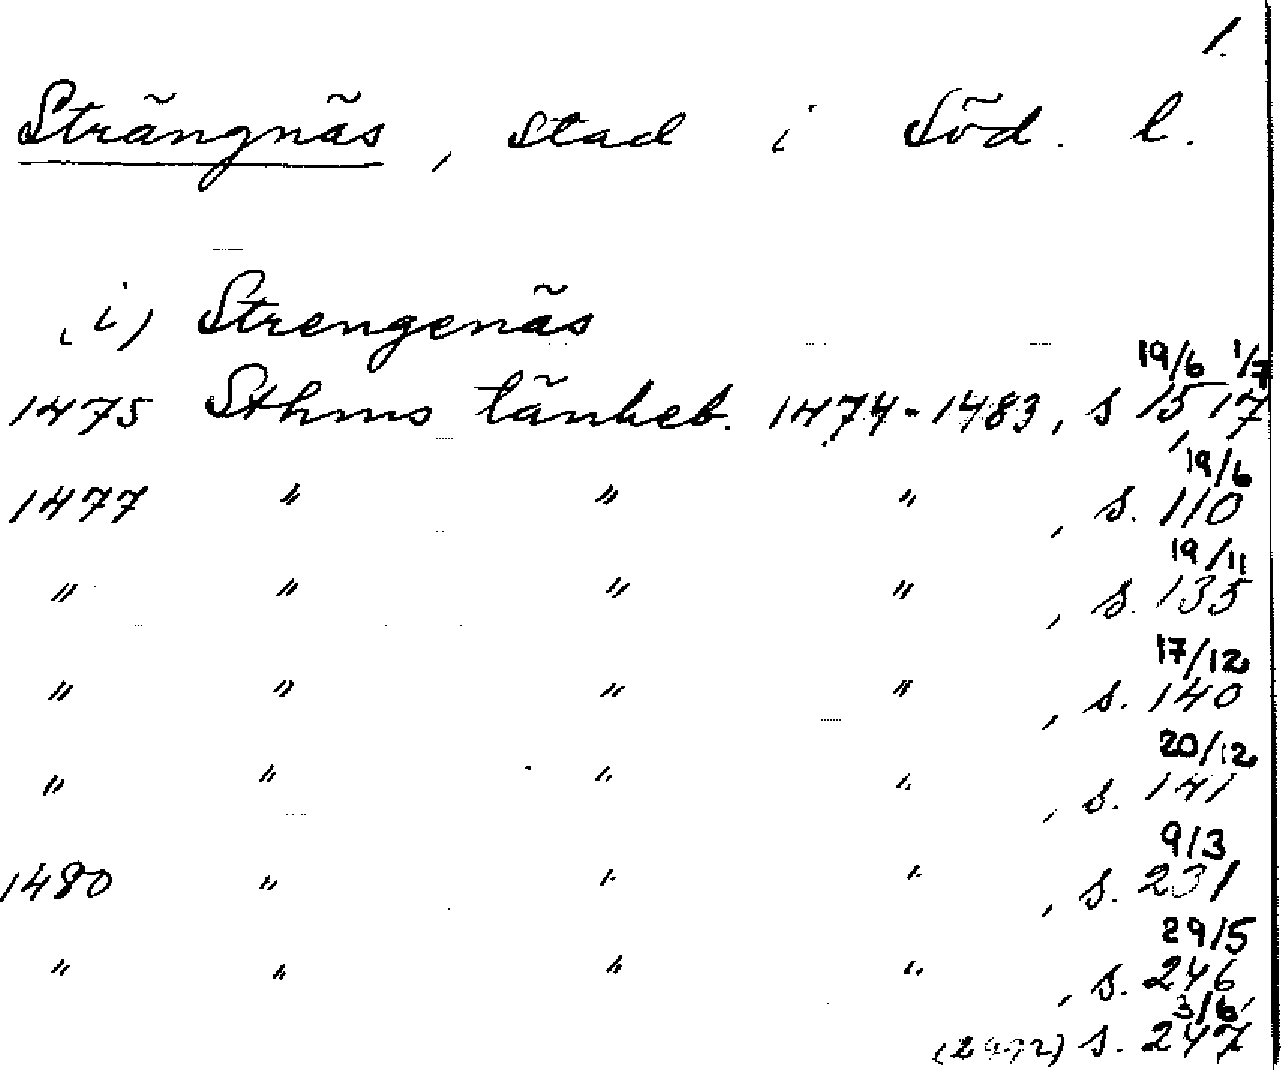 1.
Strängnäs, stad i Söd. l.
(i) Strengenäs
19/6 1/7
1475 Sthms tänkeb. 1474-1483, s 15, 17
19/6
1477 " " " , s. 110
19/11
" " " " , s. 135
17/12
" " " " , s. 140
20/12
" " " " , s. 141
9/3
1480 " " " , s. 231
29/5
" " " " , s. 246
3/6
s. 247